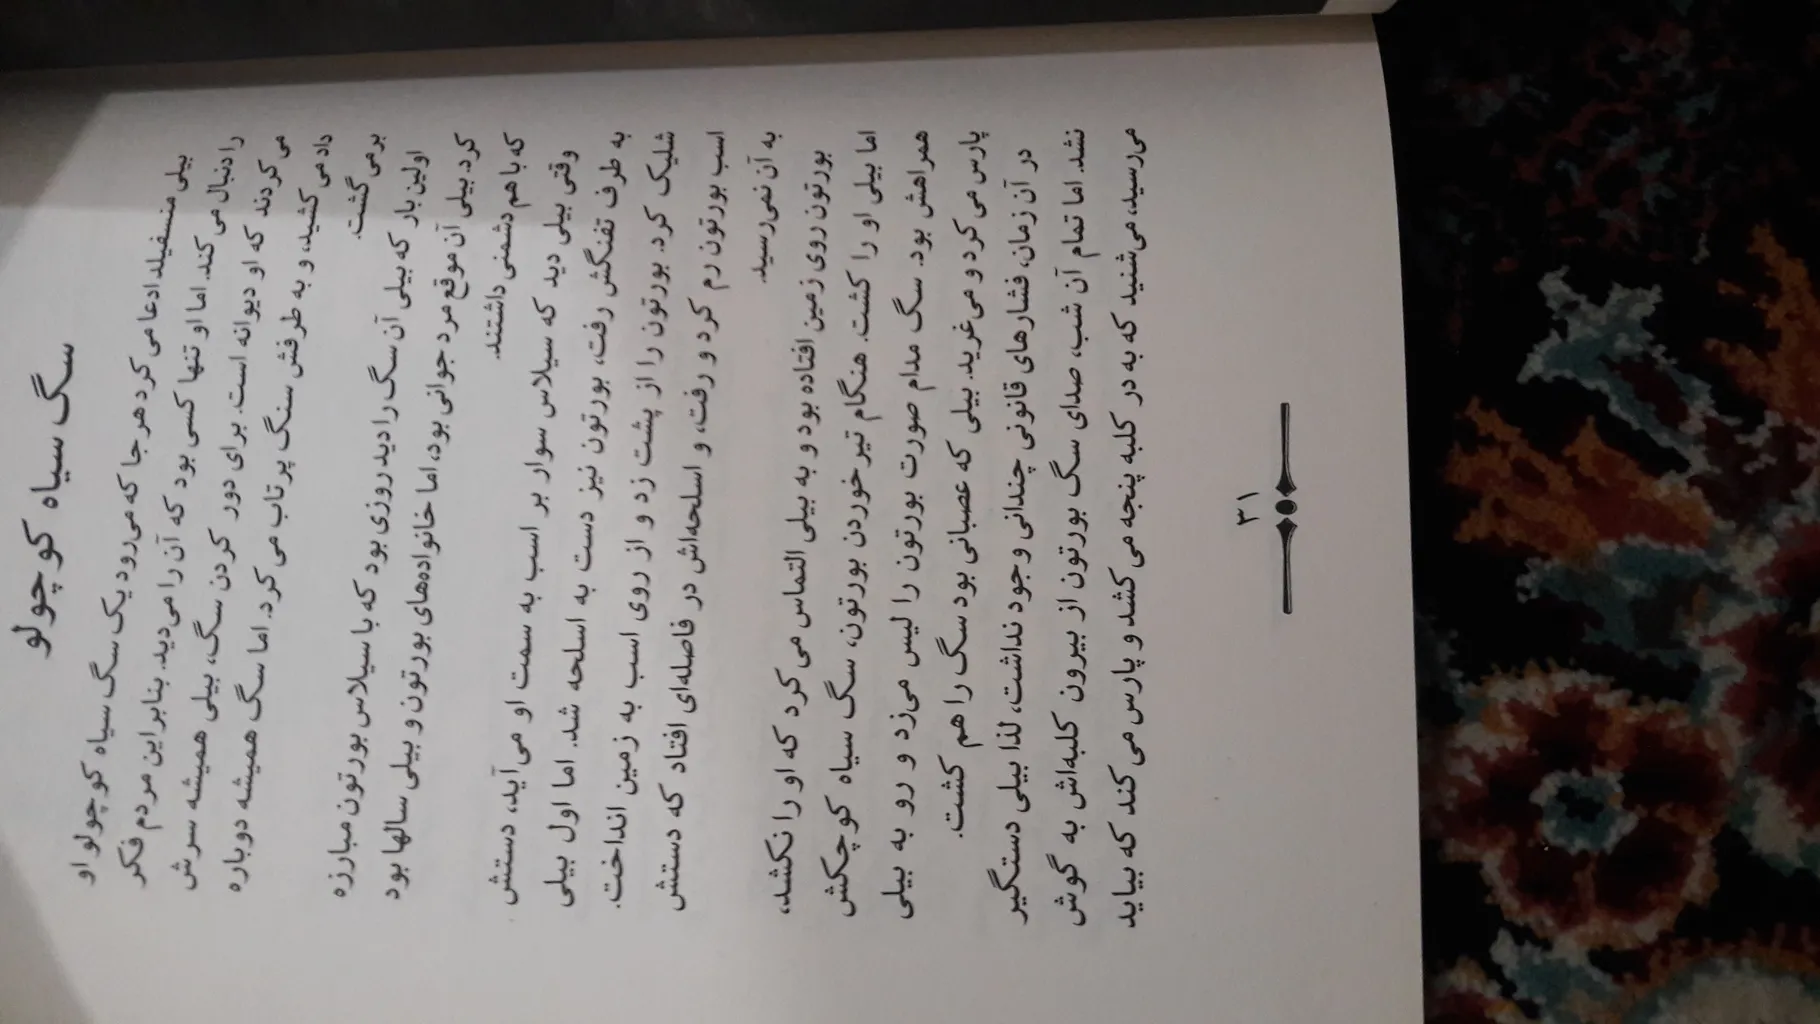 سگ سیاه کوچولو
بیلی منسفیلد ادعا می‌کرد هر جا که می‌رود یک سگ سیاه کوچولو او
را دنبال می‌کند. اما او تنها کسی بود که آن را می‌دید. بنابراین مردم فکر
می‌کردند که او دیوانه است. برای دور کردن سگ، بیلی همیشه سرش
داد می‌کشید، و به طرفش سنگ پرتاب می‌کرد. اما سگ همیشه دوباره
برمی‌گشت.
اولین بار که بیلی آن سگ را دید روزی بود که با سیلاس بورتون مبارزه
کرد. بیلی آن موقع مرد جوانی بود، اما خانواده‌های بورتون و بیلی سالها بود
که با هم دشمنی داشتند.
وقتی بیلی دید که سیلاس سوار بر اسب به سمت او می‌آید، دستش
به طرف تفنگش رفت، بورتون نیز دست به اسلحه شد. اما اول بیلی
شلیک کرد. بورتون را از پشت زد و از روی اسب به زمین انداخت.
اسب بورتون رم کرد و رفت، و اسلحه‌اش در فاصله‌ای افتاد که دستش
به آن نمی‌رسید.
بورتون روی زمین افتاده بود و به بیلی التماس می‌کرد که او را نکشد،
اما بیلی او را کشت. هنگام تیر خوردن بورتون، سگ سیاه کوچکش
همراهش بود. سگ مدام صورت بورتون را لیس می‌زد و رو به بیلی
پارس می‌کرد و می‌غرید. بیلی که عصبانی بود سگ را هم کشت.
در آن زمان، فشارهای قانونی چندانی وجود نداشت، لذا بیلی دستگیر
نشد. اما تمام آن شب، صدای سگ بورتون از بیرون کلبه‌اش به گوش
می‌رسید، می‌شنید که به در کلبه پنجه می‌کشد و پارس می‌کند که بیاید
۳۱